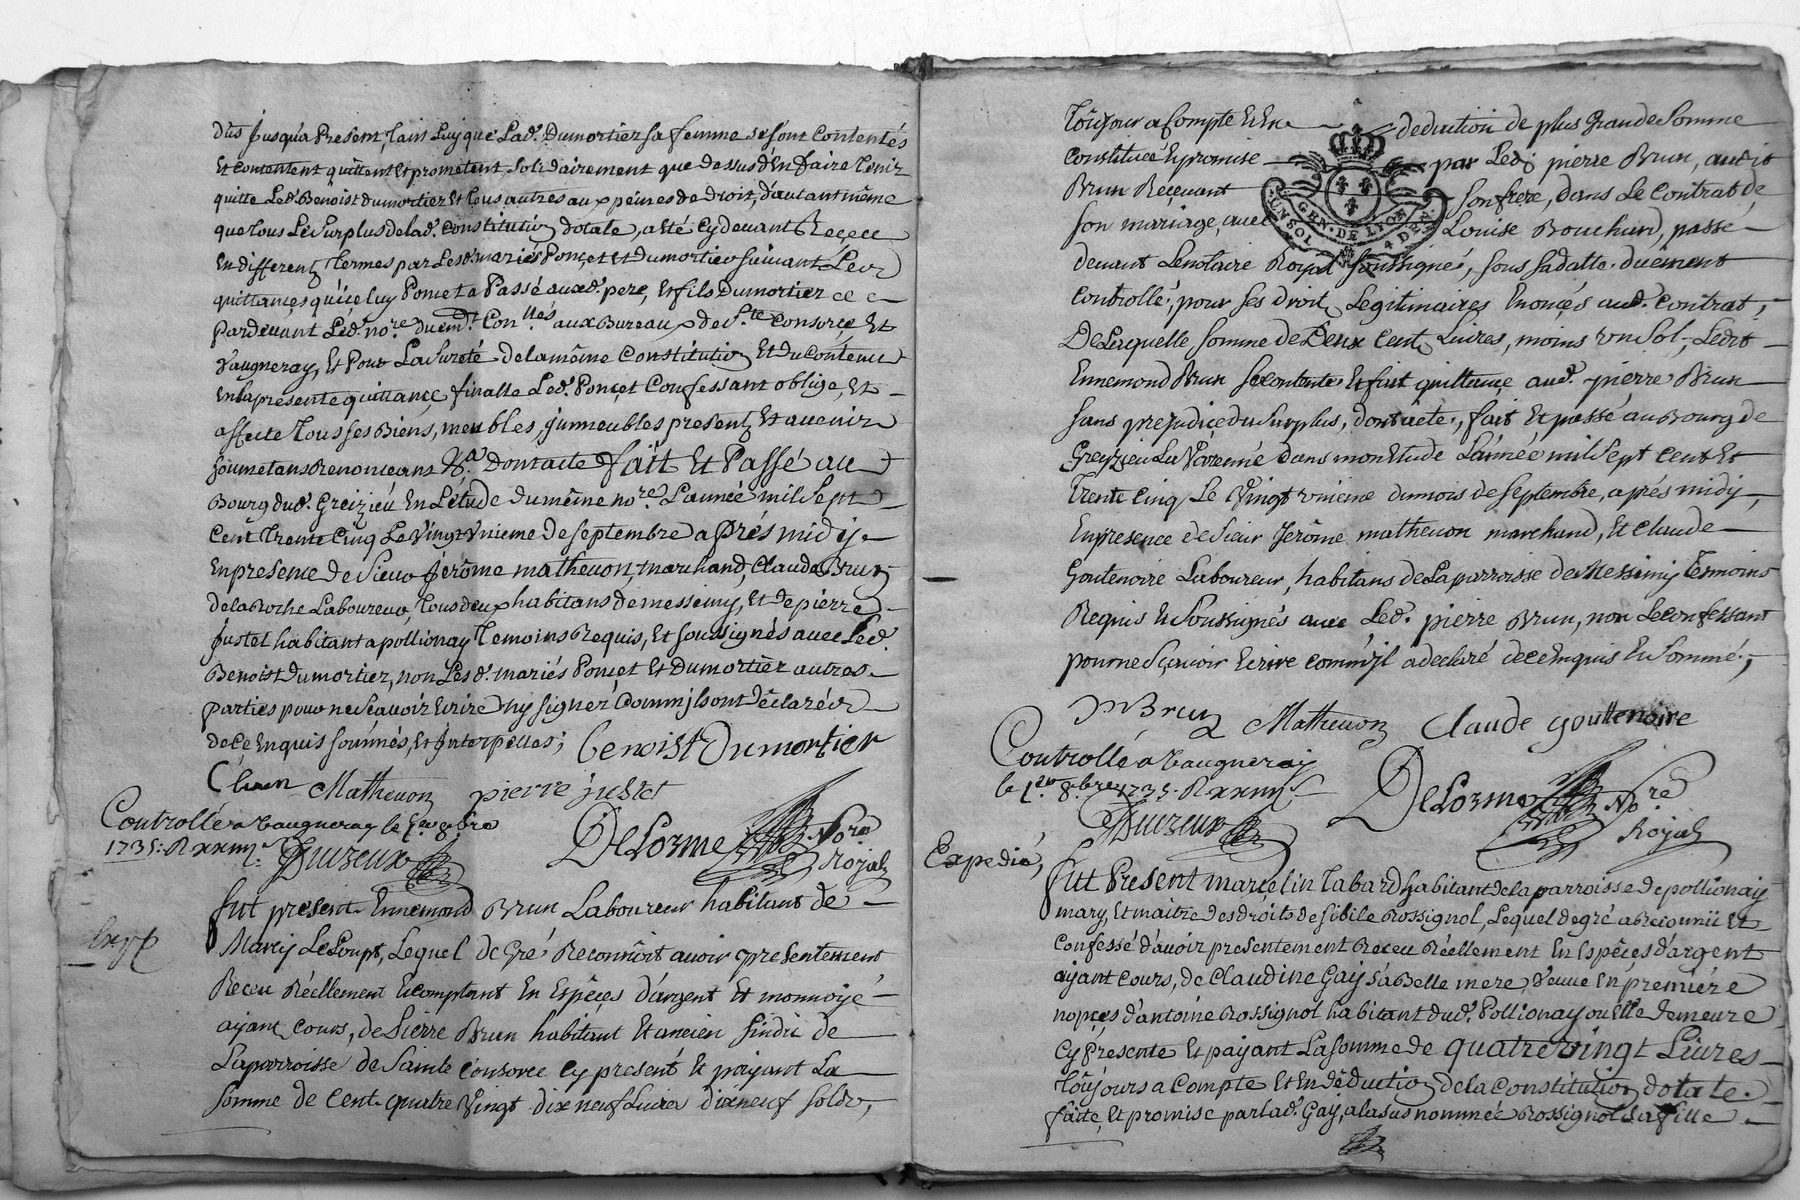 dûs Jusqu'a Present, Tant Luy que Lad. Dumortier sa femme se sont Contentés
Et contentent quittent et prometent solidairement que dessus d'En faire Tenir
quitte Led. Benoist dumortier Et Tous autres aux peines de Droit, d'autant même
que Tous Le Surplus de lad. Constitution dotale, a été Cy devant Receu
En different Termes par Lesd. mariés Ponçet Et Dumortier suivant Les
quittances qu'iceluy Poncet a Passé auxd. pere, Et fils Dumortier
Pardevant Led. no.re duemt Con.llés aux Bureaux de S.te Consorçe Et
Vaugneray, Et Pour La Sureté de la même Constitution Et du Contenu
En la presente quittance finalle Led. Ponçet Confessant oblige, Et
affecte Tous ses Biens, meubles, jmmeubles present Et avenir
Soumetans Renonceans &a. Dont acte fait Et Passé au
Bourg dud. Greizieu En L'etude du même no.re L'année mil Sept
Cent Trente Cinq Le Vingt Vnieme de septembre aprés midy
En presence de Sieur Jérôme mathevon, marchand, Claude Brun
de la Roche Laboureur, Tous deux habitans de messimy, Et de pierre
Justet habitant a pollionay Temoins Requis, Et soussignés avec Led.
Benoist Dumortier, non Lesd. mariés Ponçet Et Dumortier autres
parties pour ne Sçavoir Ecrire ny signer Comm'jls ont Déclaré
de Ce Enquis sommés, Et Jnterpellés;
Benoist Dumortier
C brun Mathevon pierre justet
Controllé a Vaugneray le 1er 8bre
1735:
DeLorme No.re
Royal
fut present Ennemond Brun Laboureur habitant de
Marcy Le Loup, Lequel de Gré Reconnoit avoir presentement
Receu Réellement Et comptant En Espêçes d'argent Et monnoye
ayant Cours, de Pierre Brun habitant Et ancien Sindic de
La parroisse de Sainte Consorce Cy present Et payant La
Somme de Cent quatre Vingt dix neuf Livres dix neuf solds,
Toûjour a Compte Et En deduction de plus Grande Somme
Constituée Et promise par Led. pierre Brun, audit
Brun Recevant son frere, dans Le Contrat de
son mariage, avec Louise Bouchard, passé
GEN. DE LION
UN SOL 4 DE.
devant Le notaire Royal soussigné, sous sa datte, duëment
Controllé, pour ses droits Legitimaires Enonçés aud. Contrat,
De Laquelle somme de Deux Cent Livres, moins vn Sol, Ledit
Ennemond Brun se Contente, Et fait quittance aud. pierre Brun
sans prejudice du Surplus, dont acte, fait Et passé au Bourg de
Greyzieu La Varenne dans mon Etude L'année mil Sept Cent Et
Trente Cinq Le Vingt vnieme du mois de septembre, aprés midy,
En presence de Sieur Jerôme mathevon marchand, Et Claude
Goutenoire Laboureur, habitans de La parroisse de Messimy Temoins
Requis Et Soussignés avec Led. pierre Brun, non Le Confessant
pour ne Sçavoir Ecrire comm'jl a declaré de ce Enquis Et Sommé,
P Brun Mathevon Claude gouttenoire
Controllé a Vaugneray
le 1er 8bre 1735
DeLorme No.re
Royal
Expedié,
fut Present Marçelin Tabard habitant de la parroisse de pollionay
mary, Et maitre des droits de Sibile Rossignol, Lequel de gré a Reconnu Et
Confessé d'avoir presentement Receu Réellement En Espêçes d'argent
ayant Cours, de Claudine Gay sa Belle mere, Veuve En premiére
nopces d'antoine Rossignol habitant dud. Pollionay ou Elle demeure
Cy Presente Et payant La Somme de quatre vingt Livres
Toûjours a Compte Et En déduction de la Constitution dotale
faite, Et promise par lad. Gay, a la sus nommée Rossignol sa fille